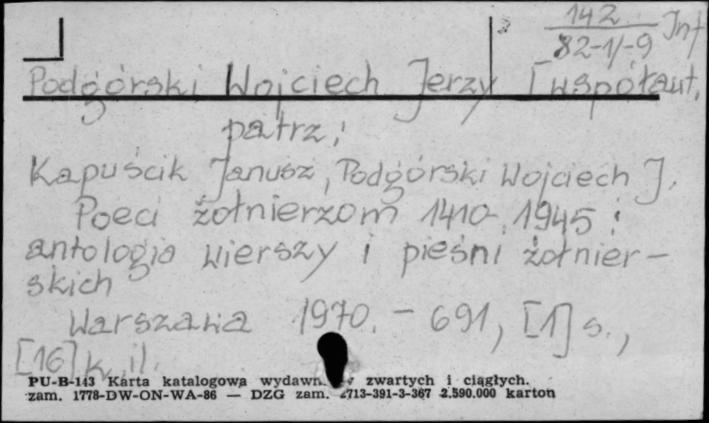 142 Inf
82-1/-9
Podgórski Wojciech Jerzy [współaut.
patrz:
Kapuścik Janusz, Podgórski Wojciech J.
Poeci żołnierzom 1410-1945 :
antologia wierszy i pieśni żołnier-
skich
Warszawa 1970. - 691, [1] s.,
[16] k. il.
PU-B-143 Karta katalogowa zwartych i ciągłych.
zam. 1778-DW-ON-WA-86 — DZG zam. 2.590.000 karton